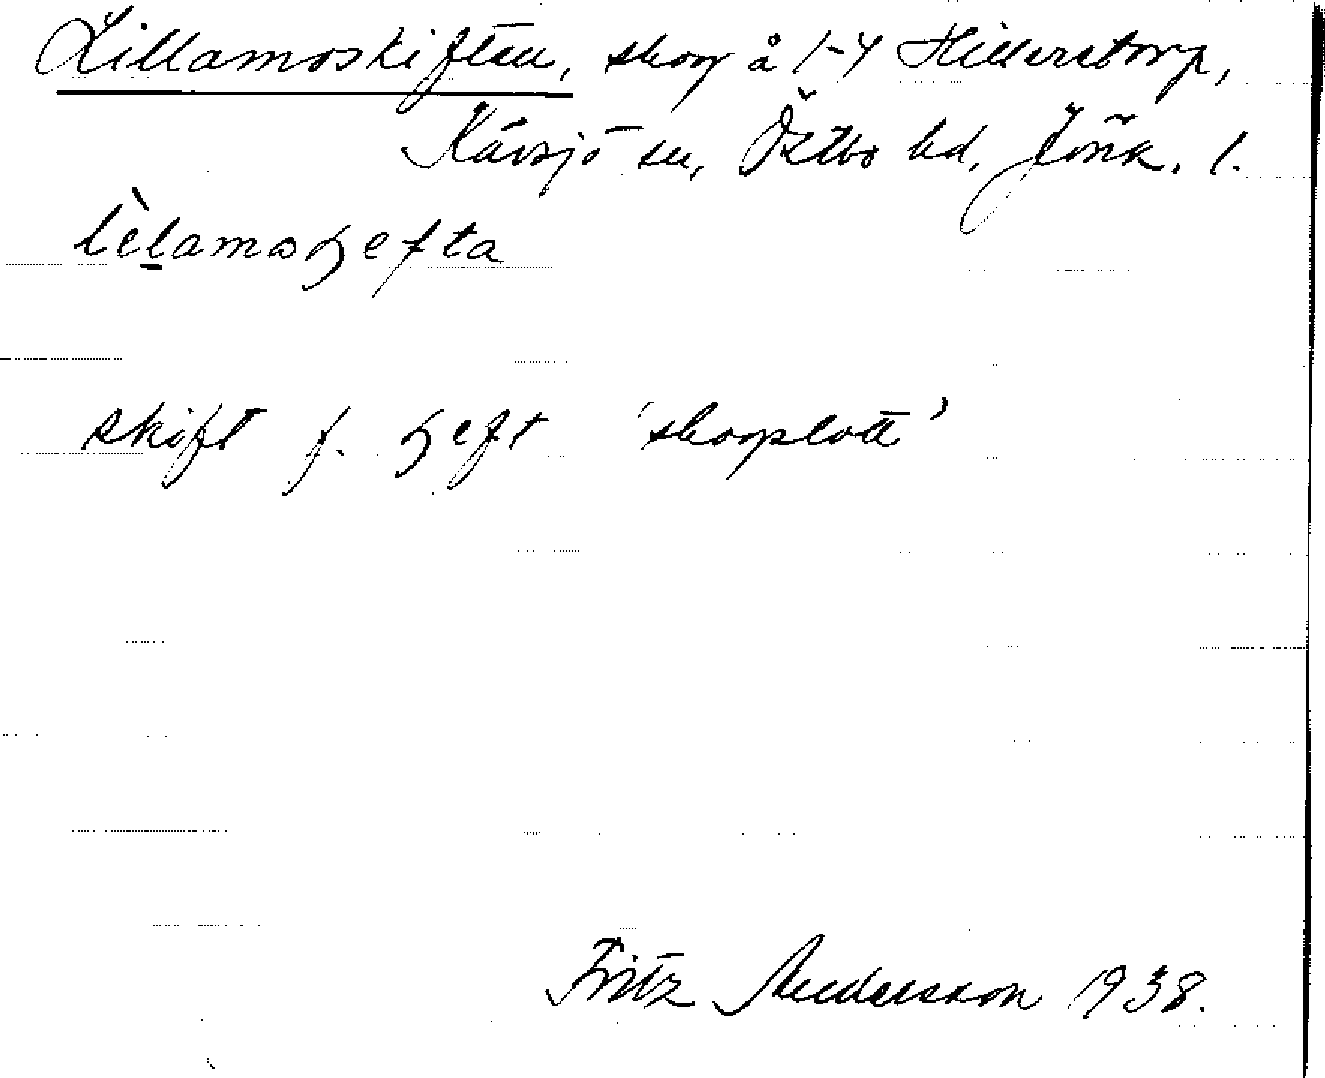 Lillamoskiften, skog å 1-4 Hillerstorp,
Kävsjö sn, Östbo hd, Jönk. l.
lèlamoɧefta
skift f. ɧeft 'skogslott'
Fritz Andersson 1938.